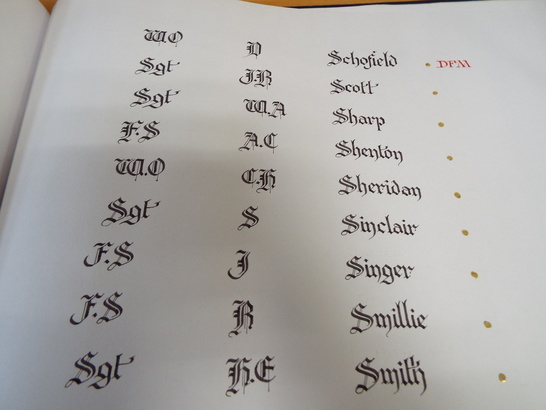 W.O D Schofield DFM
Sgt J.R Scott
Sgt W.A Sharp
F.S A.C Shenton
W.O C.H Sheridan
Sgt S Sinclair
F.S J Singer
F.S R Smillie
Sgt H.E Smith